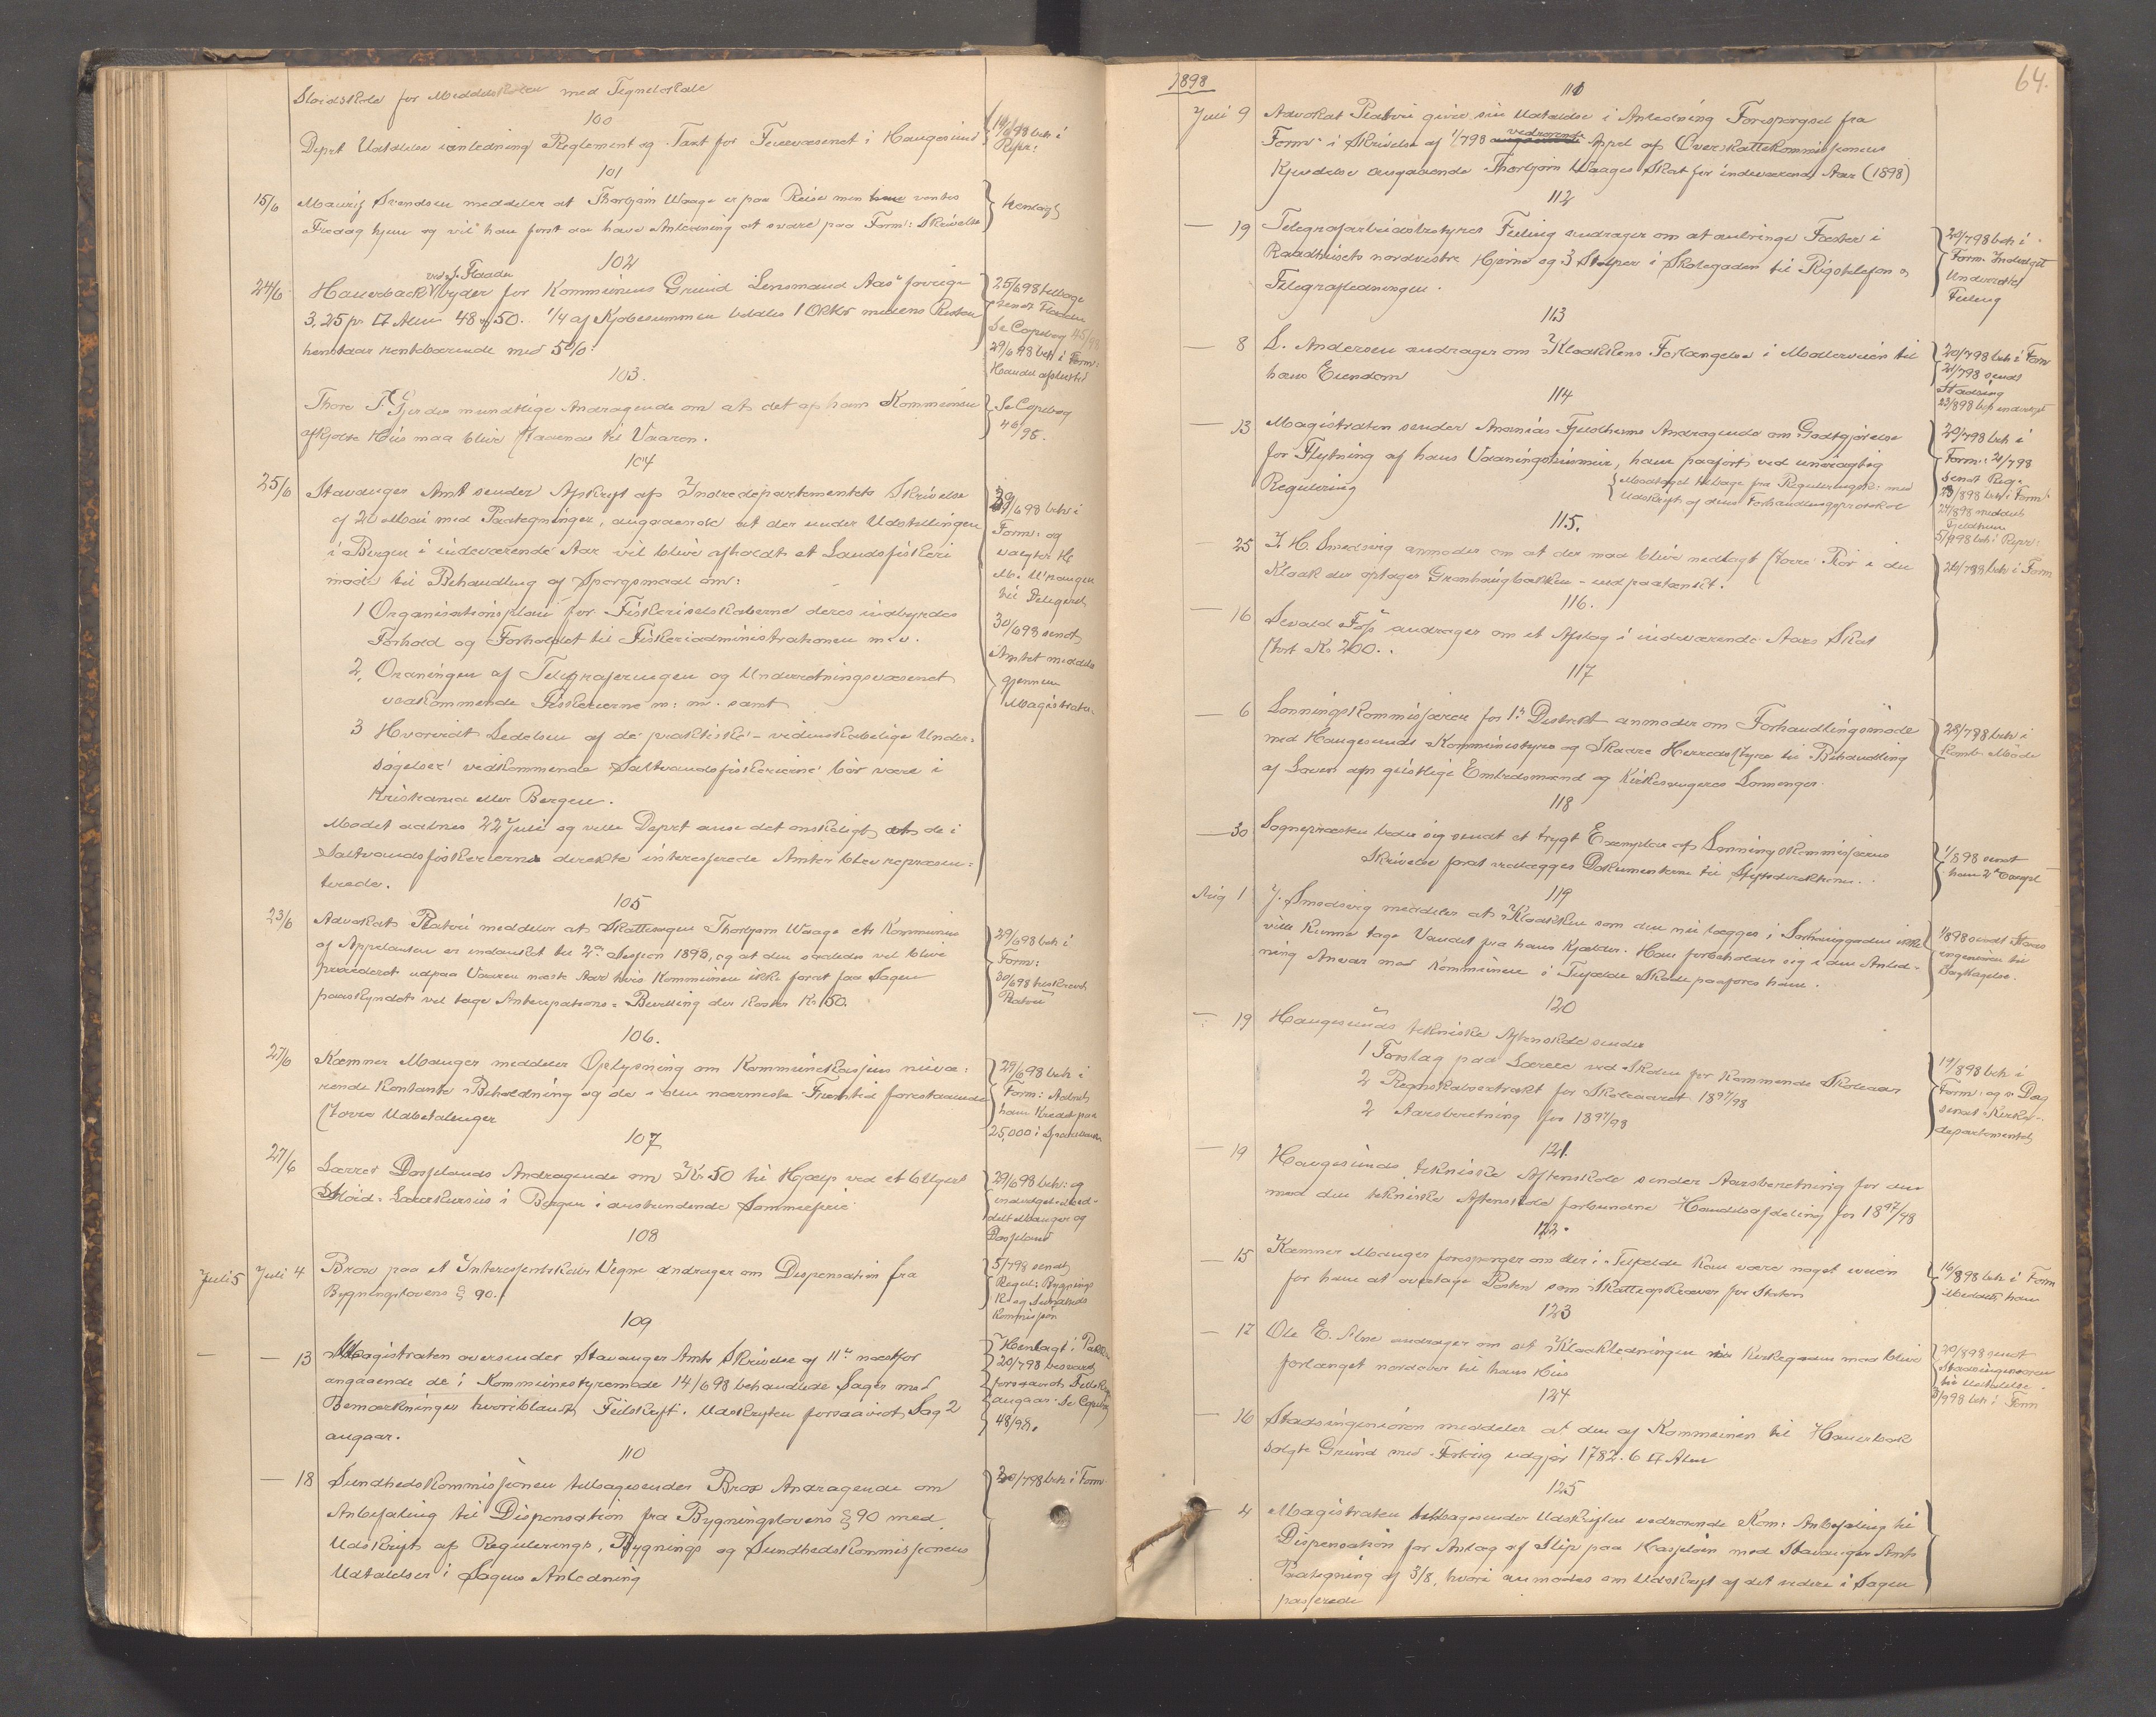 Sløidskole for Middelskolen med Tegneskole
100
Deprt Udtalelse i anledning Reglement og Taxt for Feievæsenet i Haugesund
14/6 98 beh i
Repr:
101
15/6 Mauritz Svendsen meddeler at Thorbjørn Waage er paa Reise men ventes
Fredag hjem og vil han først da have Anledning at svare paa Form: Skrivelse
henlagt
102
ved J. Flaadu
24/6 Hauerback byder for Kommunens Grund Lensmand Aas forrige
3,25 pr □ Alen 48 og 50. 1/4 af Kjøbesummen betales 1 Oktbr medens Resten
henstaar rentebærende med 5%.
25/6 98 tilbage
sendt
Se Copibog 45/98
29/6 98 beh i Form:
Handel afsluttet
103.
Thore T. Gjerdes mundtlige Andragende om at det af ham Kommunen
afkjøbte Hus maa blive staaende til Vaaren.
Se Copibog
46/98.
104
25/6 Stavanger Amt sender Afskrift af Indredepartementets Skrivelse
af 21 Mai med Paategninger, angaaende at der under Udstillingen
i Bergen i indeværende Aar vil blive afholdt et Landsfiskeri
møde til Behandling af Spørgsmaal om:
1 Organisationsplan for Fiskeriselskaberne deres indbyrdes
Forhold og Forholdet til Fiskeriadministrationen m.v.
2, Ordningen af Telegraferingen og Underretningsvæsenet
vedkommende Fiskerierne m: m. samt
3 Hvorvidt Ledelsen af de praktiske - videnskabelige Under:
søgelser vedkommende Saltvandsfiskerierne bør være i
Kristiania eller Bergen.
Mødet aabnes 22 Juli og ville Deprt anse det ønskeligt at de i
Saltvandsfiskerierne direkte interesserede Amter blev repræsen:
terede.
29/6 98 beh i
Form: og
valgtes
til Delegeret
30/6 98 sendt
Amtet meddelt
gjennem
Magistraten
105
23/6 Advokat Platou meddeler at Skattesagen Thorbjørn Waage ctr Kommunen
af Appelanten er indanket til 2den Session 1898, og at den saaledes vil blive
procederet udpaa Vaaren næste Aar hvis Kommunen ikke forat faa Sagen
paaskyndet vil tage Anticipations = Bevilling der koster Kr 50.
29/6 98 beh i
Form:
30/6 98 tilskrevet
Platou
106.
27/6 Kæmner Mauger meddeler Oplysning om Kommunekassens nuvæ:
rende kontante Beholdning og de i den nærmeste Fremtid forestaaende
større Udbetalinger
29/6 98 beh i
Form: Aabnet
ham Kredit paa
25,000 i Sparebanken
107
27/6 Lærer Dosflands Andragende om Kr 50 til Hjælp ved et billigere
Sløid: Lærerkursus i Bergen i anstundende Sommerferie
29/6 98 beh: og
indvilget. Med-
delt Mauger og
Dosfland
108
Juli 5 Juli 4 Brox paa et Interessentskabs Vegne andrager om Dispensation fra
Bygningslovens § 90.
5/7 98 sendt
Regul: Bygnings
K. og Sundheds
Kommission
109
— — 13 Magistraten oversender Stavanger Amts Skrivelse af 11te næstfør
angaaende de i Kommunestyremøde 14/6 98 behandlede Sager med
Bemærkninger hvoriblandt Feilskrift. Udskriften forsaavidt Sag 2
angaar.
Henlagt i
20/7 98 besvaret
forsaavidt Feilskr
angaar. Se Copibog
48/98.
110
— 18 Sundhedskommissionen tilbagesender Brox Andragende om
Anbefaling til Dispensation fra Bygningslovens § 90 med
Udskrift af Regulerings, Bygnings og Sundhedskommissionens
Udtalelser i Sagens Anledning
20/7 98 beh i Form
64.
1898
111
Juli 9 Advokat Platou giver sin Udtalelse i Anledning Forespørgsel fra
Form: i Skrivelse af 1/7 98 vedrørende Appel af Overskattekommissionens
Kjendelse angaaende Thorbjørn Waages Skat for indeværende Aar (1898)
112
— 19 Telegrafarbeidsbestyrer Feiling andrager om at anbringe Fæster i
Raadhusets nordvestre Hjørne og 3 Stolper i Skolegaden til Rigstelefon og
Telegrafledningen.
20/7 98 beh i
Form. Indvilget
Underrettet
Feiling
113
— 8 S. Andersen andrager om Kloakkens Forlængelse i Møllerveien til
hans Eiendom
20/7 98 beh i Form
21/7 98 sendt
Stadsing
23/8 98
114
— 13 Magistraten sender Ananias Fjeldheims Andragende om Godtgjørelse
for Flytning af hans Vaaningshusmur, ham paaført ved unøiagtig
Regulering
Modtaget tilbage fra Reguleringsk: med
Udskrift af dens Forhandlingsprotokol
20/7 98 beh i
Form: 21/7 98
sendt Reg.
23/8 98 beh i Form
24/8 98 meddelt
Fjeldheim
5/9 98 beh i Repr:
115.
— 25 J. H. Smedsvig anmoder om at der maa blive nedlagt større Rør i den
Kloak der optager Grønhaugbakken - end paatænkt.
26/7 98 beh i Form
116.
— 16 Sevald Foss andrager om et Afslag i indeværende Aars Skat
stort Kr 200..
117
— 6 Lønningskommissæren for 1ste Distrikt anmoder om Forhandlingsmøde
med Haugesunds Kommunestyre og Skaare Herredsstyre til Behandling
af Loven om geistlige Embedsmænd og Kirkesangeres Lønninger.
28/7 98 beh i
Komb. Møde
118
— 30 Sognepræsten beder sig sendt et trygt Exemplar af Lønningskommissærens
Skrivelse forat vedlægges Dokumenterne til Stiftsdirektionen.
1/8 98 sendt
ham 2 Exempl
119
Aug 1 J. Smedsvig meddeler at Kloakken som den nu lægges i Sørhauggaden ikke
ville kunne tage Vandet fra hans Kjælder. Han forbeholder sig i den Anled-
ning Ansvar mod Kommunen i Tilfælde Skade paaføres ham.
1/8 98 sendt Stads
ingeniøren til
Iagttagelse.
120
— 19 Haugesunds tekniske Aftenskole sender
1 Forslag paa Lærere ved Skolen for kommende Skoleaar
2 Regnskabsextrakt for Skoleaaret 1897/98
2 Aarsberetning for 1897/98
19/8 98 beh i
Form: og s. Dag
sendt Kirke-
departementet
121.
— 19 Haugesunds tekniske Aftenskole sender Aarsberetning for den
med den tekniske Aftenskole forbundne Handelsafdeling for 1897/98
122.
— 15 Kæmner Mauger forespørger om der i Tilfælde kan være noget iveien
for ham at overtage Posten som Skatteopkræver for Staten
16/8 98 beh i Form
Meddelt ham
123
— 12 Ole E. Alne andrager om at Kloakledningen Kirkegaden maa blive
forlænget nordover til hans Hus
20/8 98 sendt
Stadsingeniøren
til Udtalelse.
3/9 98 beh i Form
124
— 16 Stadsingeniøren meddeler at den af Kommunen til Hauerbak
solgte Grund med Fortoug udgjør 1782.6 □ Alen
125
— 4 Magistraten tilbagesender Udskriften vedrørende Kom: Anbefaling til
Dispensation for Anlæg af Slip paa Hasseløen med Stavanger Amts
Paategning af 3/8, hvori anmodes om Udskrift af det videre i Sagen
passerede